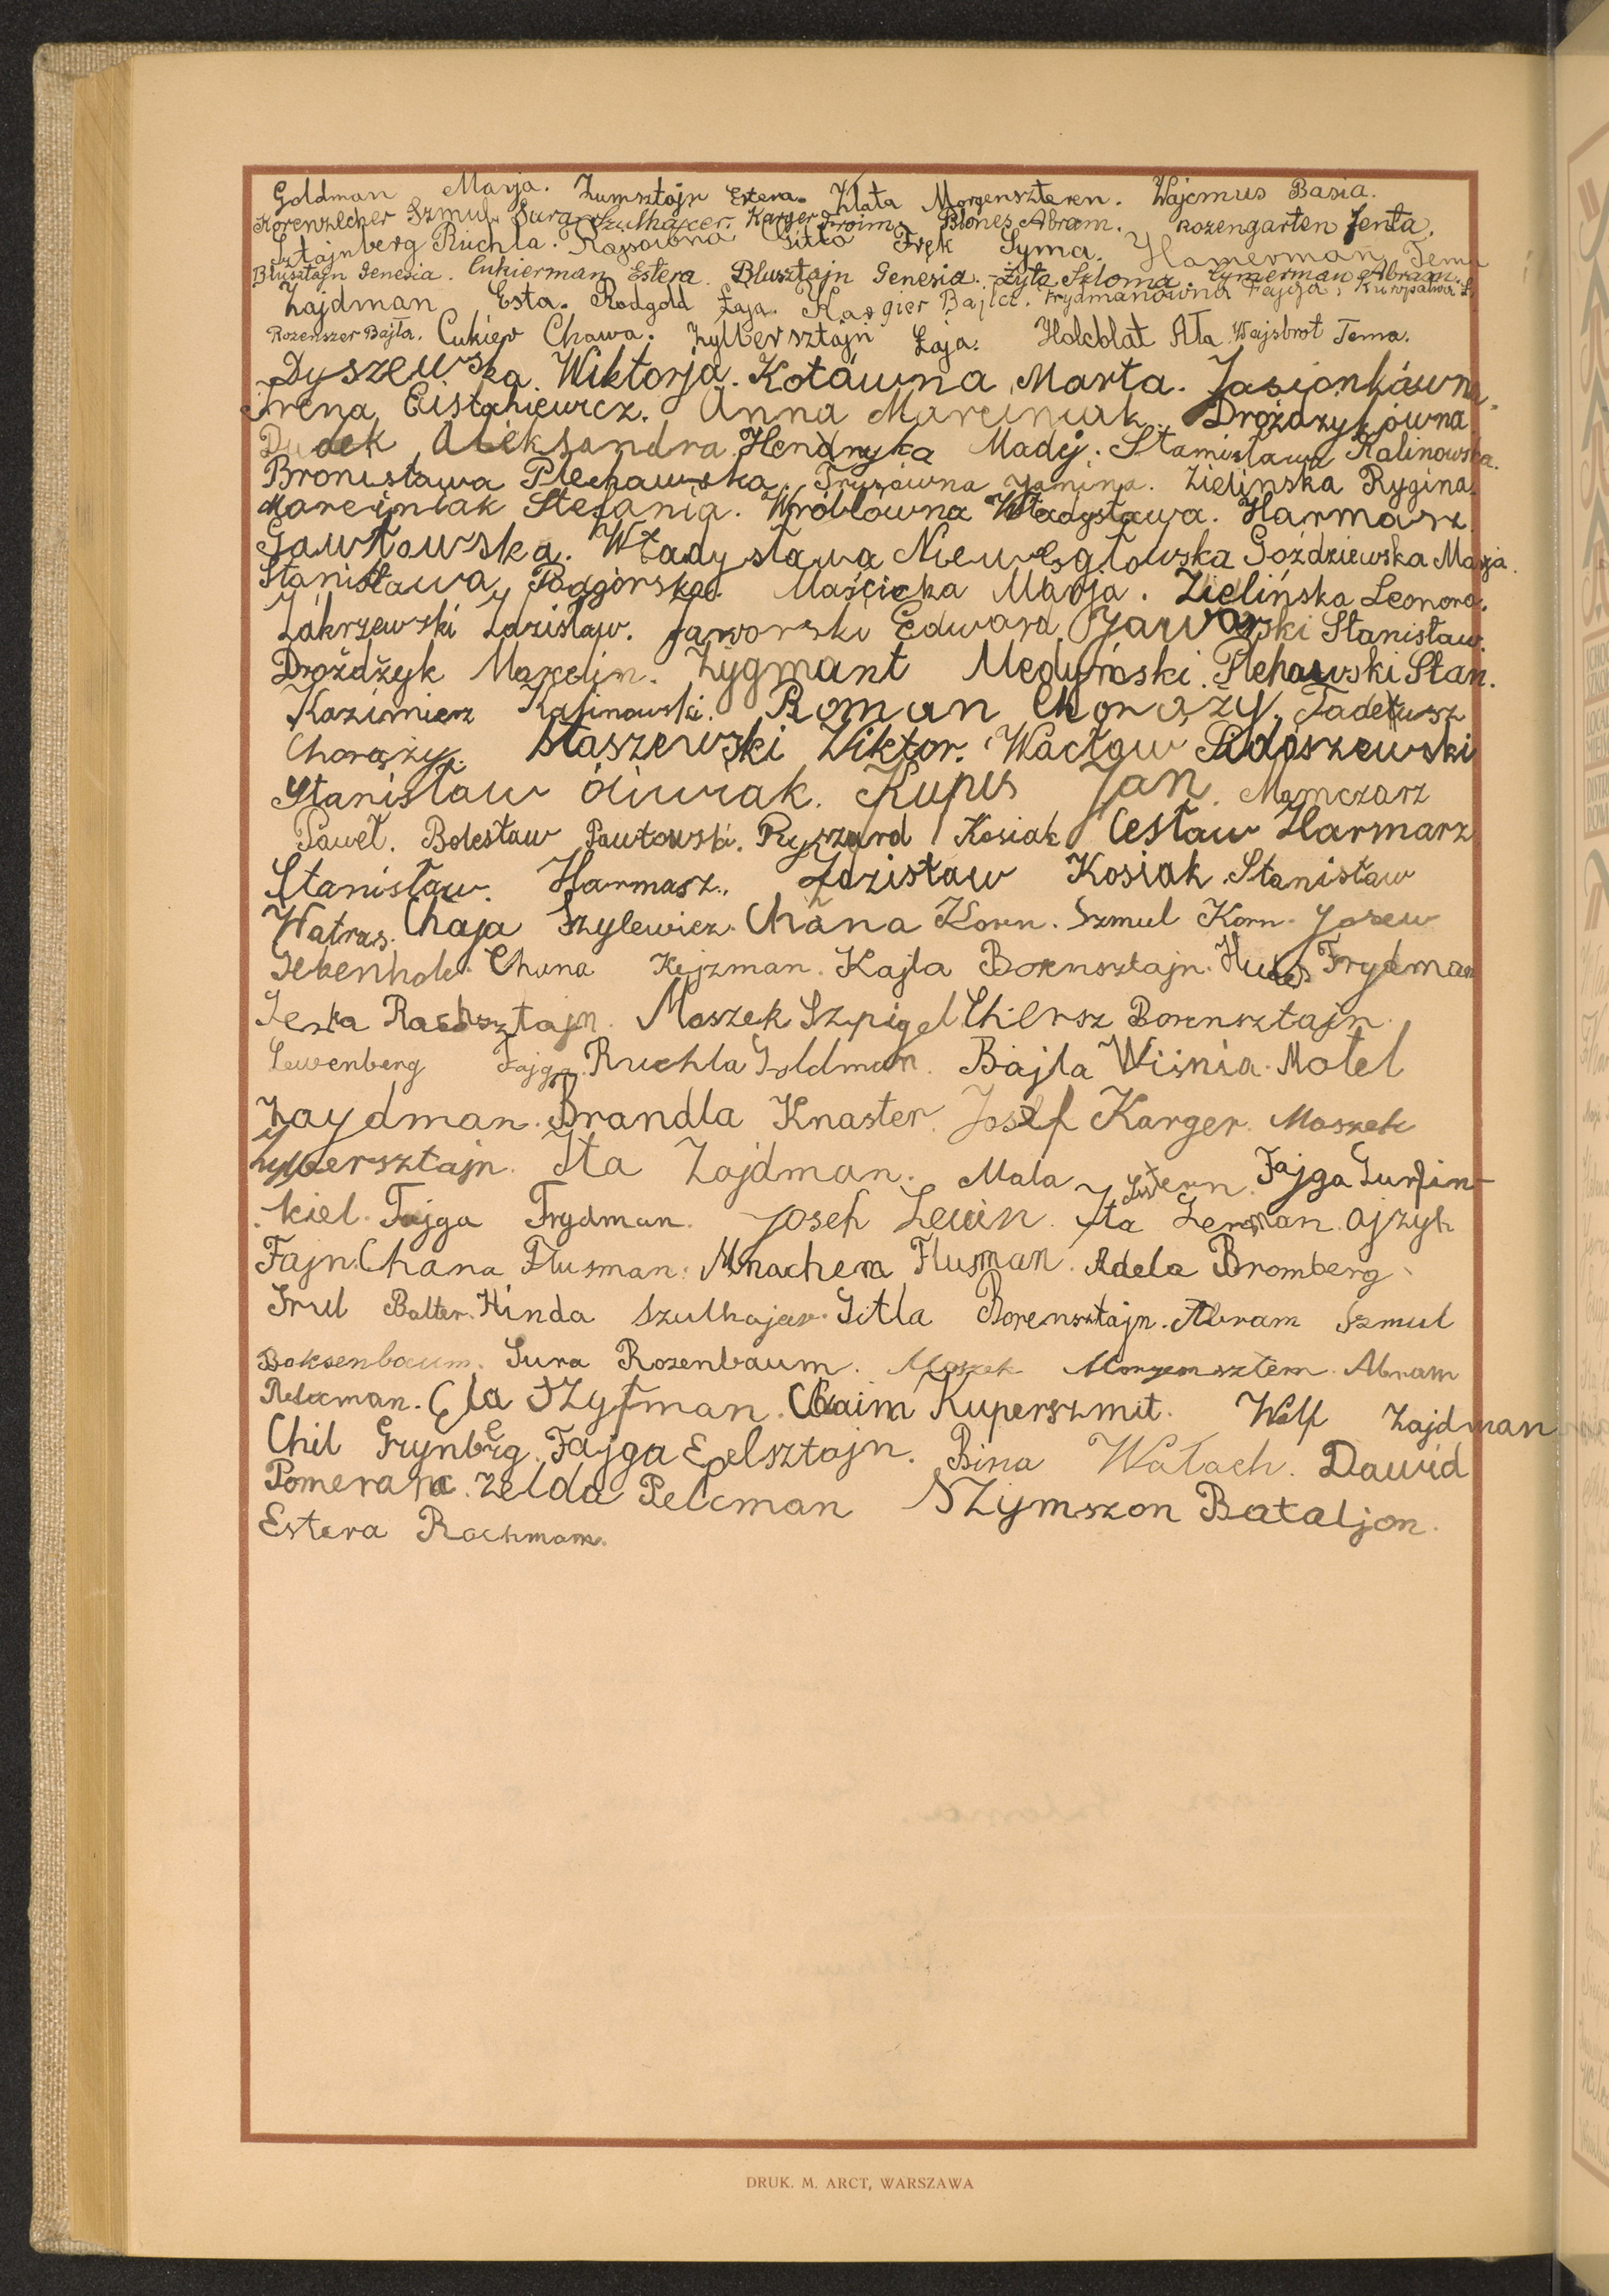 Goldman Marja. Zumsztajn Estera. Złata Morgensztern. Wajcmus Basia.
Korenzecher Szmul. Sura Szulhajcer. Karger Froim. Blones Abram. Rozengarten Jenta.
Sztajnberg Ruchla. Gitla Fręk Syma. Hamerman Tema
Blusztajn Genesia. Cukierman Estera. Blusztajn Genesia. Żyta Szloma. Cymerman Abram.
Zajdman Esta. Rodgold Łaja. Kargier Bajla. Frydmanówna Fajga,
Rozenszer Bajla. Cukier Chawa. Zylbersztajn Łaja. Holcblat Ała. Wajsbrot Tema.
Dyszewska. Wiktorja. Kotówna Marta. Jasionkówna
Irena Anna Marciniak. Drożdżykówna.
Dudek Aleksandra. Hendryka Madej. Stanisława Kalinowska.
Bronisława Plechawska. Janina. Zielinska Rygina.
Marciniak Stefania. Wróblówna Władysława. Harmasz
Gawłowska. Władysława Niewęgłowska Goździewska Marja.
Stanisława Podgórska. Maścicka Marja. Zielińska Leonora.
Zakrzewski Zdzisław. Jaworski Edward. Jaworski Stanisław.
Drożdżyk Marcelin. Zygmunt Medyński. Plehawski Stan.
Kazimierz Kalinowski. Roman Chorąży. Tadeusz
Chorąży. Staszewski Wiktor. Wacław
Stanisław Óliwiak. Kupis Jan. Mamczarz
Paweł. Bolesław Pawłowski. Ryszard Kosiak Cesław Harmarz
Stanisław. Harmasz. Zdzisław Kosiak Stanisław
Watras. Chaja Szylewicz. Chana Korn. Szmul Korn. Josew
Chuna Kejzman. Kajla Borensztajn. Frydman
Moszek Szpigel. Chersz Borensztajn.
Lewenberg Fajga. Ruchla Goldman. Bajla Wiśnia. Motel
Zaydman. Brandla Knaster. Josef Karger. Moszek
Zylbersztajn. Ita Zajdman. Mala Sztern. Fajga Gurfin-
kiel. Fajga Frydman. Josef Lewin. Ita Lerman. Ajzyk
Fajn. Chana Flusman. Mnachem Flusman. Adela Bromberg.
Srul Balter. Hinda Szulhajcer. Gitla Borensztajn. Abram Szmul
Boksenbaum. Sura Rozenbaum. Moszek Morgensztern. Abram
Pelcman. Ela Szyfman. Chaim Kuperszmit. Wolf Zajdman
Chil Grynberg. Fajga Epelsztajn. Bina Wałach. Dawid
Pomeranc. Zelda Pelcman Szymszon Bataljon.
Estera Rochman.
DRUK. M. ARCT, WARSZAWA